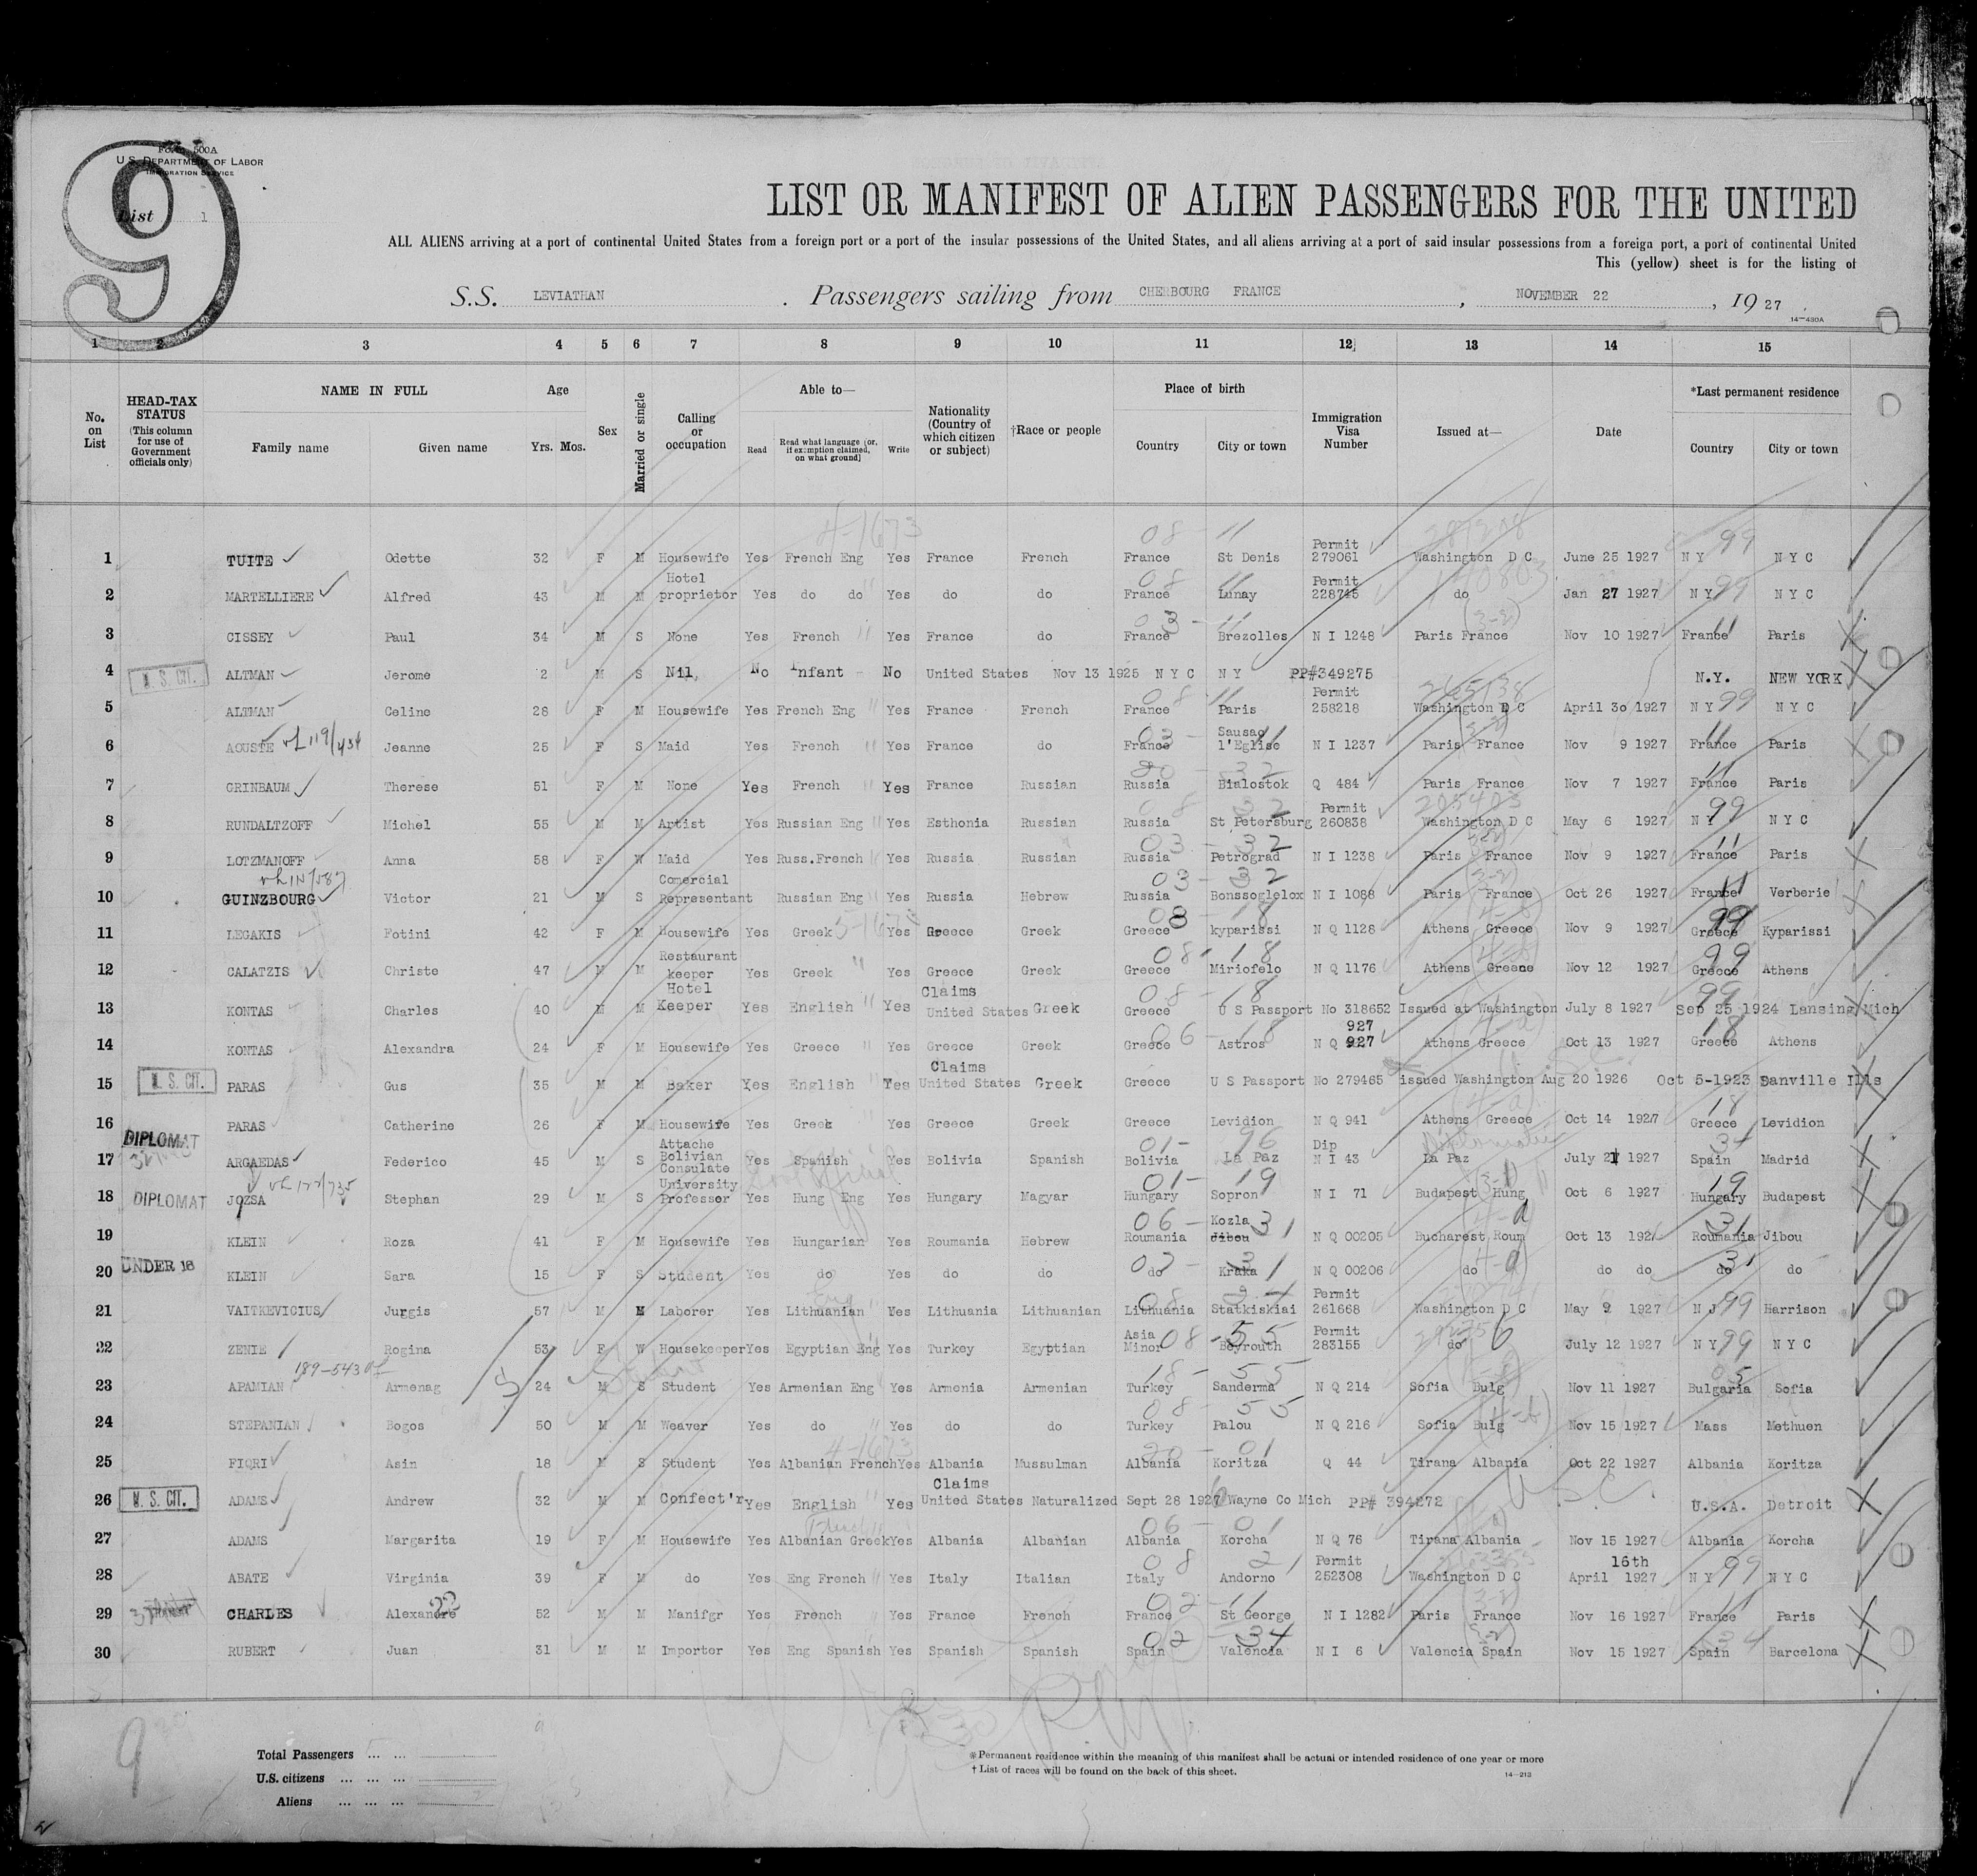 Form 500A
U.S. DEPARTMENT OF LABOR
IMMIGRATION SERVICE
9
List 1
LIST OR MANIFEST OF ALIEN PASSENGERS FOR THE UNITED
ALL ALIENS arriving at a port of continental United States from a foreign port or a port of the insular possessions of the United States, and all aliens arriving at a port of said insular possessions from a foreign port, a port of continental United
This (yellow) sheet is for the listing of
S.S. LEVIATHAN . Passengers sailing from CHERBOURG FRANCE , NOVEMBER 22 , 19 27
14—430A
1 2 3 4 5 6 7 8 9 10 11 12 13 14 15
No. on List
HEAD-TAX STATUS (This column for use of Government officials only)
NAME IN FULL
Family name Given name
Age
Yrs. Mos.
Sex
Married or single
Calling or occupation
Able to—
Read
Read what language (or, if exemption claimed, on what ground)
Write
Nationality (Country of which citizen or subject)
†Race or people
Place of birth
Country City or town
Immigration Visa Number
Issued at—
Date
*Last permanent residence
Country City or town
4-1673 08 - 11 99
1 TUITE Odette 32 F M Housewife Yes French Eng Yes France French France St Denis Permit 279061 Washington D C June 25 1927 N Y N Y C
2 MARTELLIERE Alfred 43 M M Hotel proprietor Yes do do Yes do do France Lunay Permit 228745 do Jan 27 1927 N Y 99 N Y C
3 CISSEY Paul 34 M S None Yes French Yes France do France Brezolles N I 1248 Paris France Nov 10 1927 France Paris
4 U. S. CIT. ALTMAN Jerome 2 M S Nil, No Infant No United States Nov 13 1925 N Y C N Y PP#349275 N.Y. NEW YORK
5 ALTMAN Celine 28 F M Housewife Yes French Eng Yes France French France Paris Permit 258218 Washington D C April 30 1927 N Y 99 N Y C
6 AOUSTE Jeanne 25 F S Maid Yes French Yes France do France Sausac l'Eglise N I 1237 Paris France Nov 9 1927 France Paris
7 GRINBAUM Therese 51 F M None Yes French Yes France Russian Russia Bialostok Q 484 Paris France Nov 7 1927 France Paris
8 RUNDALTZOFF Michel 55 M M Artist Yes Russian Eng Yes Esthonia Russian Russia St Petersburg Permit 260838 Washington D C May 6 1927 N Y 99 N Y C
9 LOTZMANOFF Anna 58 F W Maid Yes Russ.French Yes Russia Russian Russia Petrograd N I 1238 Paris France Nov 9 1927 France Paris
10 GUINZBOURG Victor 21 M S Comercial Representant Russian Eng Yes Russia Hebrew Russia Bonssoglelox N I 1088 Paris France Oct 26 1927 France Verberie
11 LEGAKIS Fotini 42 F M Housewife Yes Greek Yes Greece Greek Greece kyparissi N Q 1128 Athens Greece Nov 9 1927 Greece Kyparissi
12 CALATZIS Christe 47 M M Restaurant keeper Yes Greek Yes Greece Greek Greece Miriofelo N Q 1176 Athens Greece Nov 12 1927 Greece Athens
13 KONTAS Charles 40 M M Hotel Keeper Yes English Yes Claims United States Greek Greece U S Passport No 318652 Issued at Washington July 8 1927 Sep 25 1924 Lansing Mich
14 KONTAS Alexandra 24 F M Housewife Yes Greece Yes Greece Greek Greece Astros N Q 927 927 Athens Greece Oct 13 1927 Greece Athens
15 U. S. CIT. PARAS Gus 35 M M Baker Yes English Yes Claims United States Greek Greece U S Passport No 279465 issued Washington Aug 20 1926 Oct 5-1923 Danville Ills
16 PARAS Catherine 26 F M Housewife Yes Greek Yes Greece Greek Greece Levidion N Q 941 Athens Greece Oct 14 1927 Greece Levidion
17 DIPLOMAT ARGAEDAS Federico 45 M S Attache Bolivian Consulate Yes Spanish Yes Bolivia Spanish Bolivia La Paz Dip N I 43 La Paz July 21 1927 Spain Madrid
18 DIPLOMAT JOZSA Stephan 29 M S University Professor Yes Hung Eng Yes Hungary Magyar Hungary Sopron N I 71 Budapest Hung Oct 6 1927 Hungary Budapest
19 KLEIN Roza 41 F M Housewife Yes Hungarian Yes Roumania Hebrew Roumania Kozla Jibou N Q 00205 Bucharest Roum Oct 13 192 Roumania Jibou
20 UNDER 16 KLEIN Sara 15 F S Student Yes do Yes do do do Kraka N Q 00206 do do do do do
21 VAITREVICIUS Jurgis 57 M M Laborer Yes Lithuanian Yes Lithuania Lithuanian Lithuania Statkiskiai Permit 261668 Washington D C May 2 1927 N J 99 Harrison
22 ZENIE Rogina 53 F W Housekeeper Yes Egyptian Eng Yes Turkey Egyptian Asia Minor Beyrouth Permit 283155 do July 12 1927 N Y 99 N Y C
23 APAMIAN Armenag 24 M S Student Yes Armenian Eng Yes Armenia Armenian Turkey Sanderma N Q 214 Sofia Bulg Nov 11 1927 Bulgaria Sofia
24 STEPANIAN Bogos 50 M M Weaver Yes do Yes do do Turkey Palou N Q 216 Sofia Bulg Nov 15 1927 Mass Methuen
25 FIQRI Asin 18 M S Student Yes Albanian French Yes Albania Mussulman Albania Koritza Q 44 Tirana Albania Oct 22 1927 Albania Koritza
26 U. S. CIT. ADAMS Andrew 32 M M Confect'r Yes English Yes Claims United States Naturalized Sept 28 1927 Wayne Co Mich PP# 394272 U.S.A. Detroit
27 ADAMS Margarita 19 F M Housewife Yes Albanian Greek Yes Albania Albanian Albania Korcha N Q 76 Tirana Albania Nov 15 1927 Albania Korcha
28 ABATE Virginia 39 F M do Yes Eng French Yes Italy Italian Italy Andorno Permit 252308 Washington D C April 16th 1927 N Y 99 N Y C
29 CHARLES Alexandre 52 M M Manifgr Yes French Yes France French France St George N I 1282 Paris France Nov 16 1927 France Paris
30 RUBERT Juan 31 M M Importer Yes Eng Spanish Yes Spanish Spanish Spain Valencia N I 6 Valencia Spain Nov 15 1927 Spain Barcelona
9
Total Passengers ... ...
U.S. citizens ... ... ...
Aliens ... ... ...
*Permanent residence within the meaning of this manifest shall be actual or intended residence of one year or more
† List of races will be found on the back of this sheet.
14—213